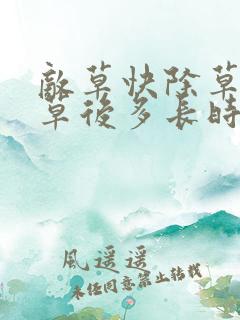 敵草快除草
草後多長時
風遥遥
未經同意禁止轉載